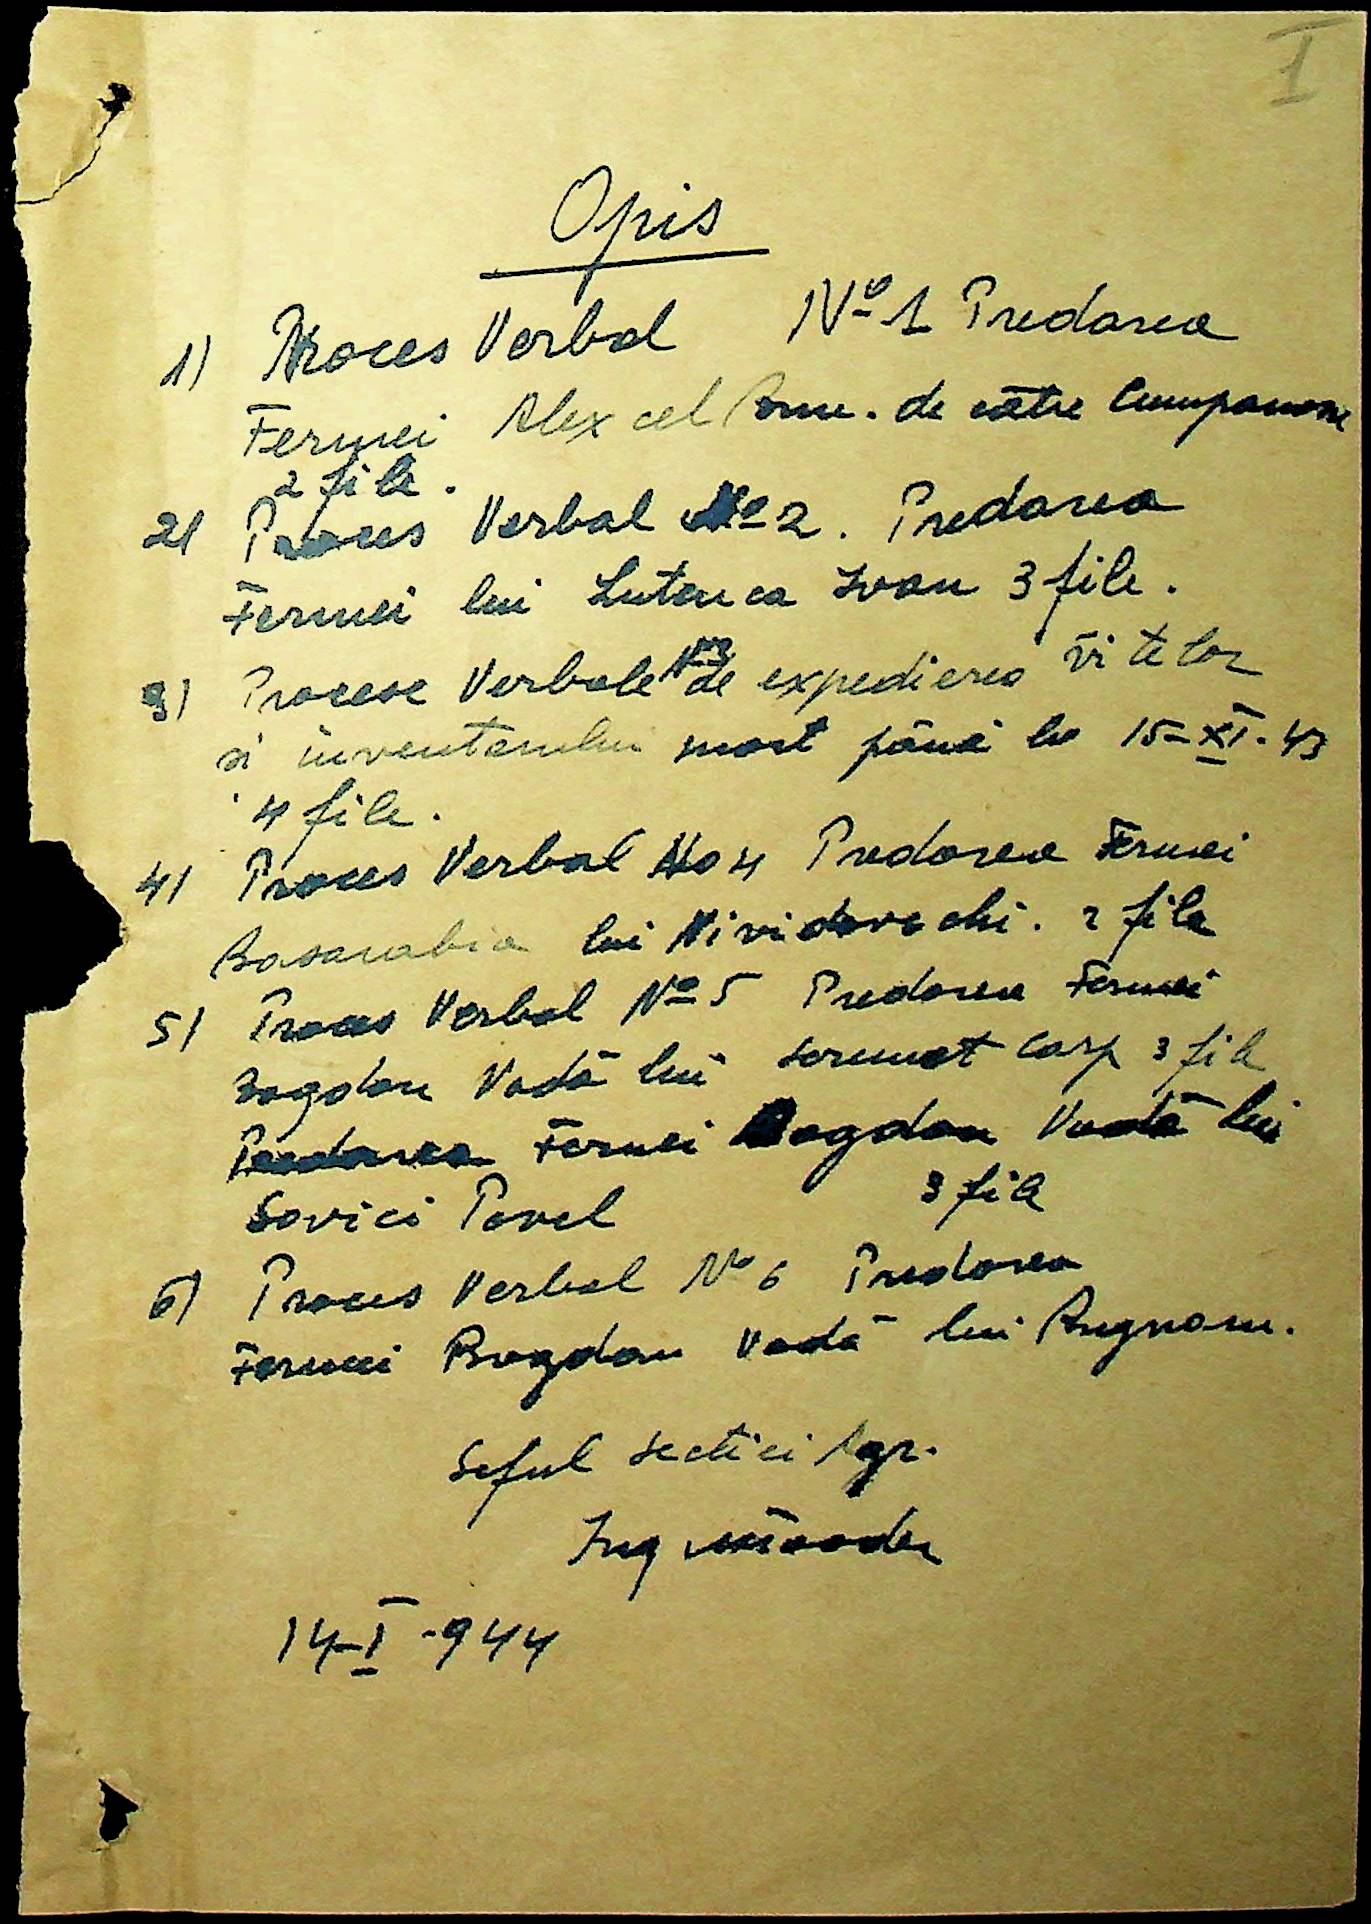 I
Opis
1) Proces Verbal No 1 Predarea
Fermei Alex cel de către
2 file.
2) Proces Verbal No 2. Predarea
Fermei lui Ivan 3 file.
No 3
3) Procese Verbale de expedierea vitelor
si inventarului mort până la 15-XI-43
4 file.
4) Proces Verbal No 4 Predarea Fermei
Basarabia lui 2 file
5) Proces Verbal No 5 Predarea Fermei
Bogdan Vodă lui Carp 3 file
Predarea Fermei Bogdan Vodă lui
Savici Pavel 3 file
6) Proces Verbal No 6 Predarea
Fermei Bogdan Vodă lui
Seful sectiei Agr.
Ing
14-I-944